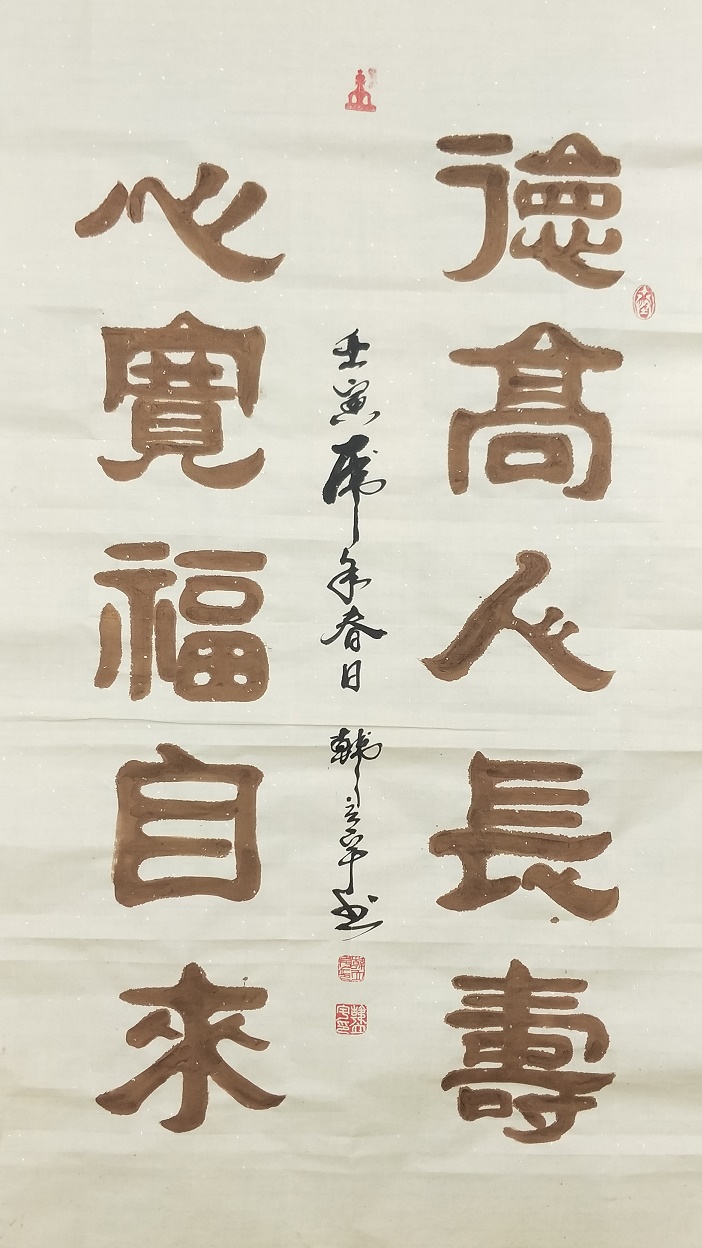 德高人長壽
壬寅虎年春日 韓书
心寬福自來